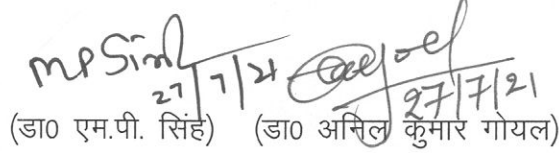 MPSingh Goyal
27/7/21 27/7/21
(डा0 एम.पी. सिंह) (डा0 अनिल कुमार गोयल)